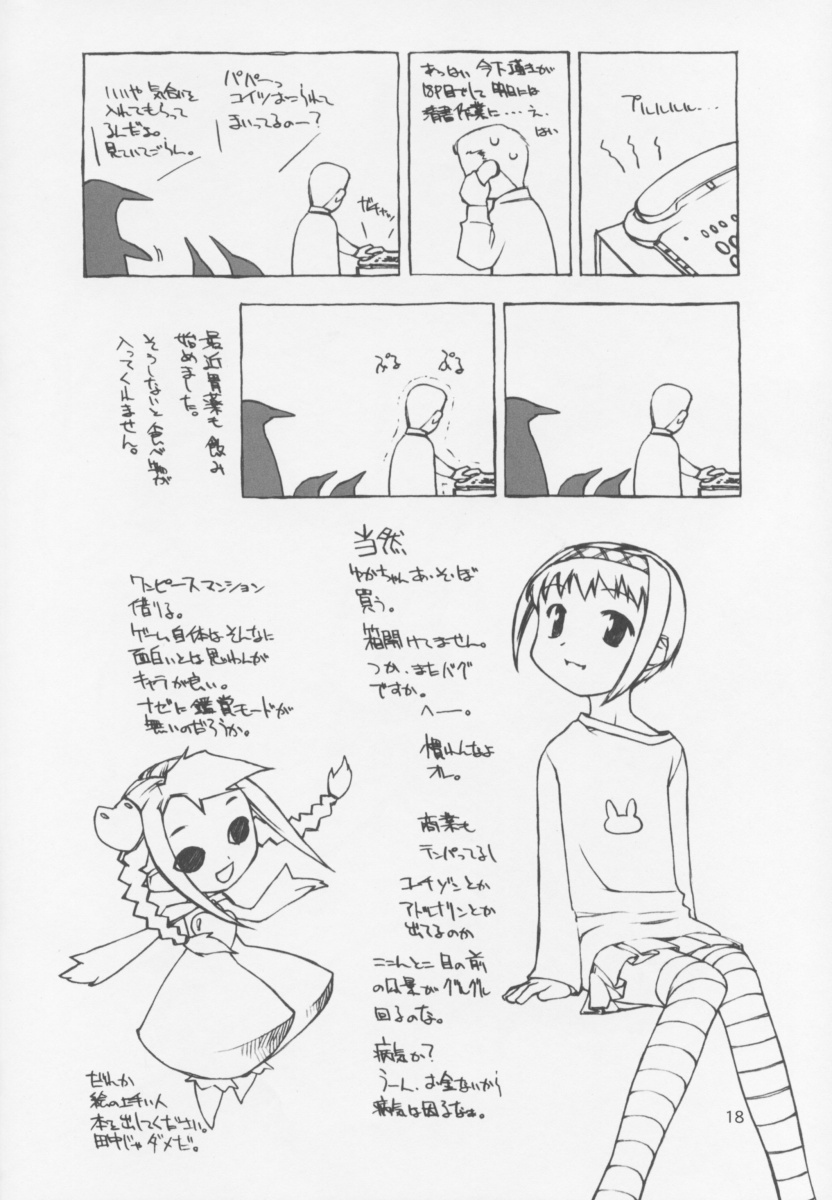 プルルルル…
あっはい 今下描きが
18P目でして 明日には
清書作業に・・・・え、
はい
パパーっ
コイツおこられて
まいってるのー?
いいや 気合いを
入れてもらって
るんだよ。
見ていてごらん。
ガチャッ
ぷる
ぷる
最近胃薬も飲み
始めました。
そうしないと食べ物が
入ってくれません。
当然
ゆかちゃんあ・そ・ぼ
買う。
箱開けてません。
つか、またバグ
ですか。
へー。
慣れんなよ
オレ。
商業も
テンパってるし
コーチゾンとか
アドレナリンとか
出てるのか
ここんとこ目の前
の風景がグルグル
回るのな。
病気か?
うーん、お金ないから
病気は困るなぁ。
ワンピースマンション
借りる。
ゲーム自体はそんなに
面白いとは思わんが
キャラが良い。
ナゼに鑑賞モードが
無いのだろうか。
だれか
絵の上手い人
本を出してください。
田中じゃダメだ。
18